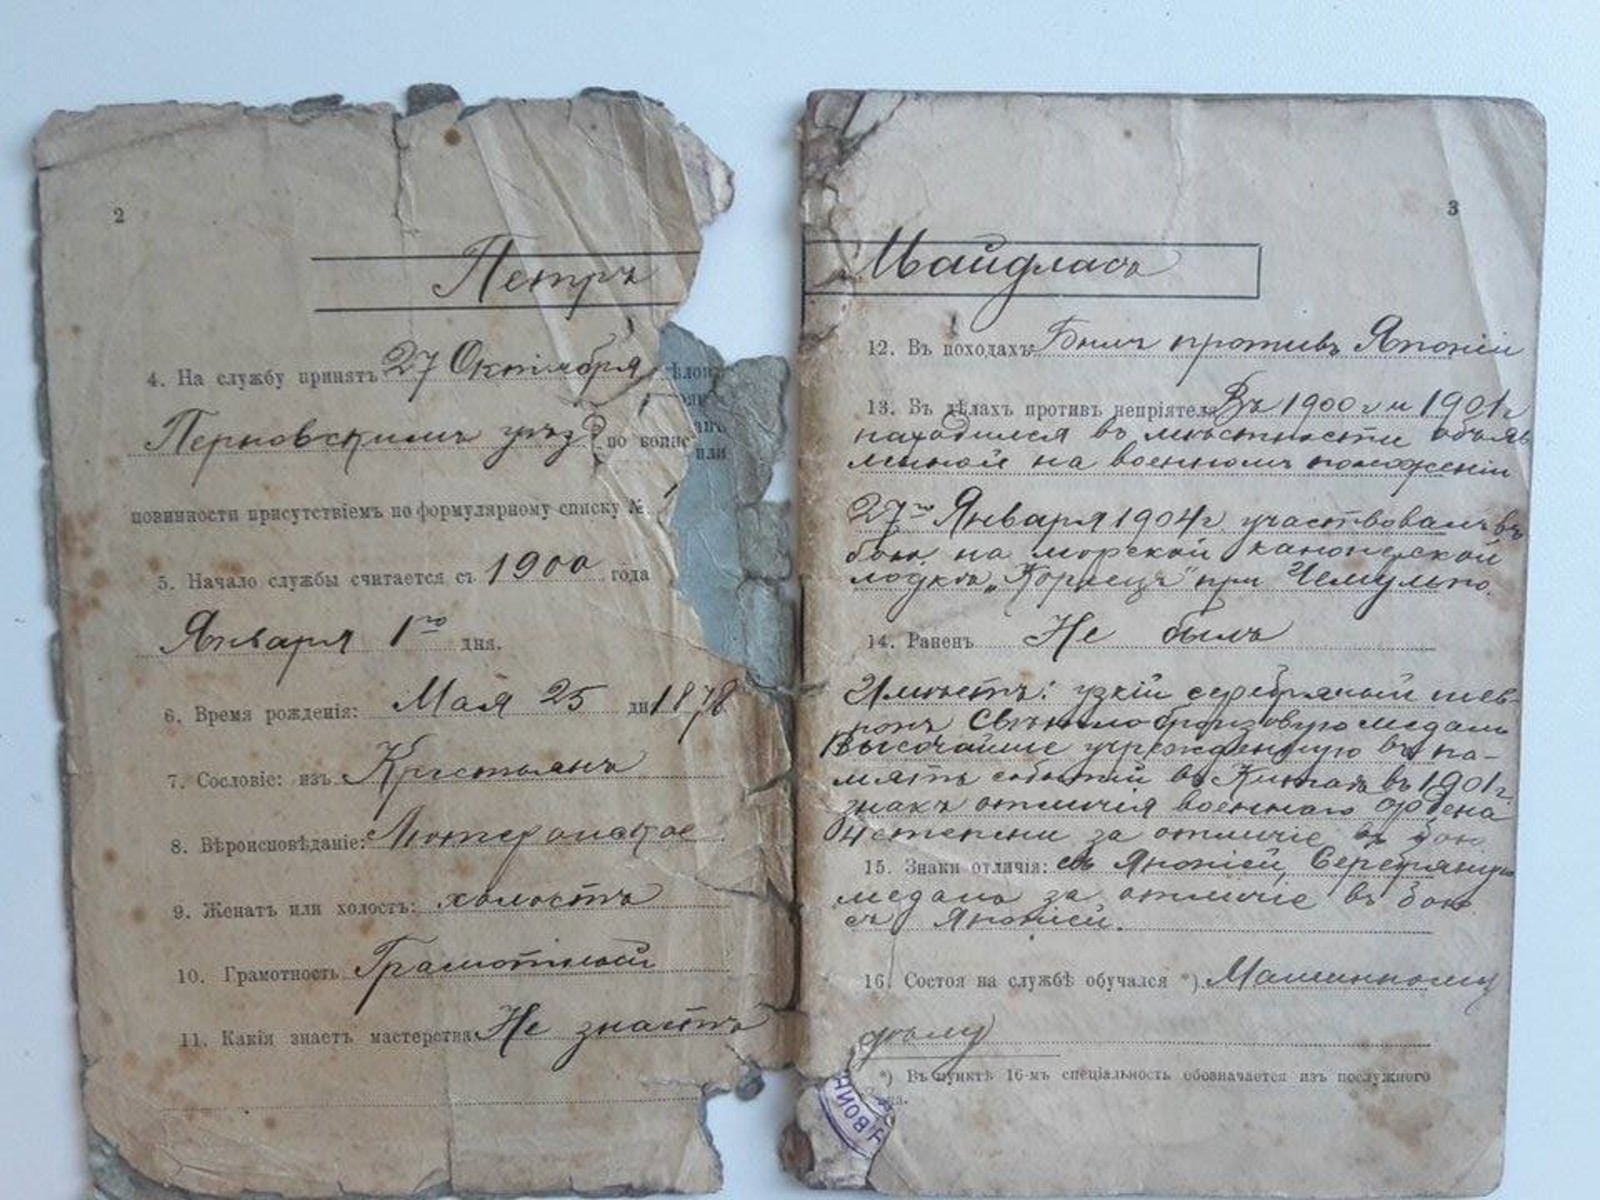 2
Петръ
4. На службу принятъ 27 Октября
Перновскимъ уѣзд по воинс
повинности присутствіемъ по формулярному списку №
5. Начало службы считается съ 1900 года
Января 1го дня.
6. Время рожденія: Мая 25 дн 1878
7. Сословіе: изъ Крестьянъ
8. Вѣроисповѣданіе: Лютеранское
9. Женатъ или холостъ: холостъ
10. Грамотность Грамотный
11. Какія знаетъ мастерства: Не знаетъ
3
Майдласъ
12. Въ походахъ: Былъ противъ Японіи
13. Въ дѣлахъ противъ непріятеля Въ 1900 г и 1901 г
находился въ мѣстности объяв
ленной на военномъ положеніи
27го Января 1904 г участвовалъ въ
бою на морской канонерской
лодкѣ „Кореецъ" при Чемульпо.
14. Раненъ Не былъ
Имѣетъ: узкій серебряный шев-
ронъ Свѣтлобронзовую медаль
Высочайше учрежденную въ па-
мять событій въ Китаѣ въ 1901 г.
знакъ отличія военнаго ордена
4 степени за отличіе въ бою
15. Знаки отличія: съ Японіей, Серебряную
медаль за отличіе въ бою
съ Японіей.
16. Состоя на службѣ обучался *) Машинному
дѣлу
*) Въ пунктѣ 16-мъ спеціальность обозначается изъ послужного